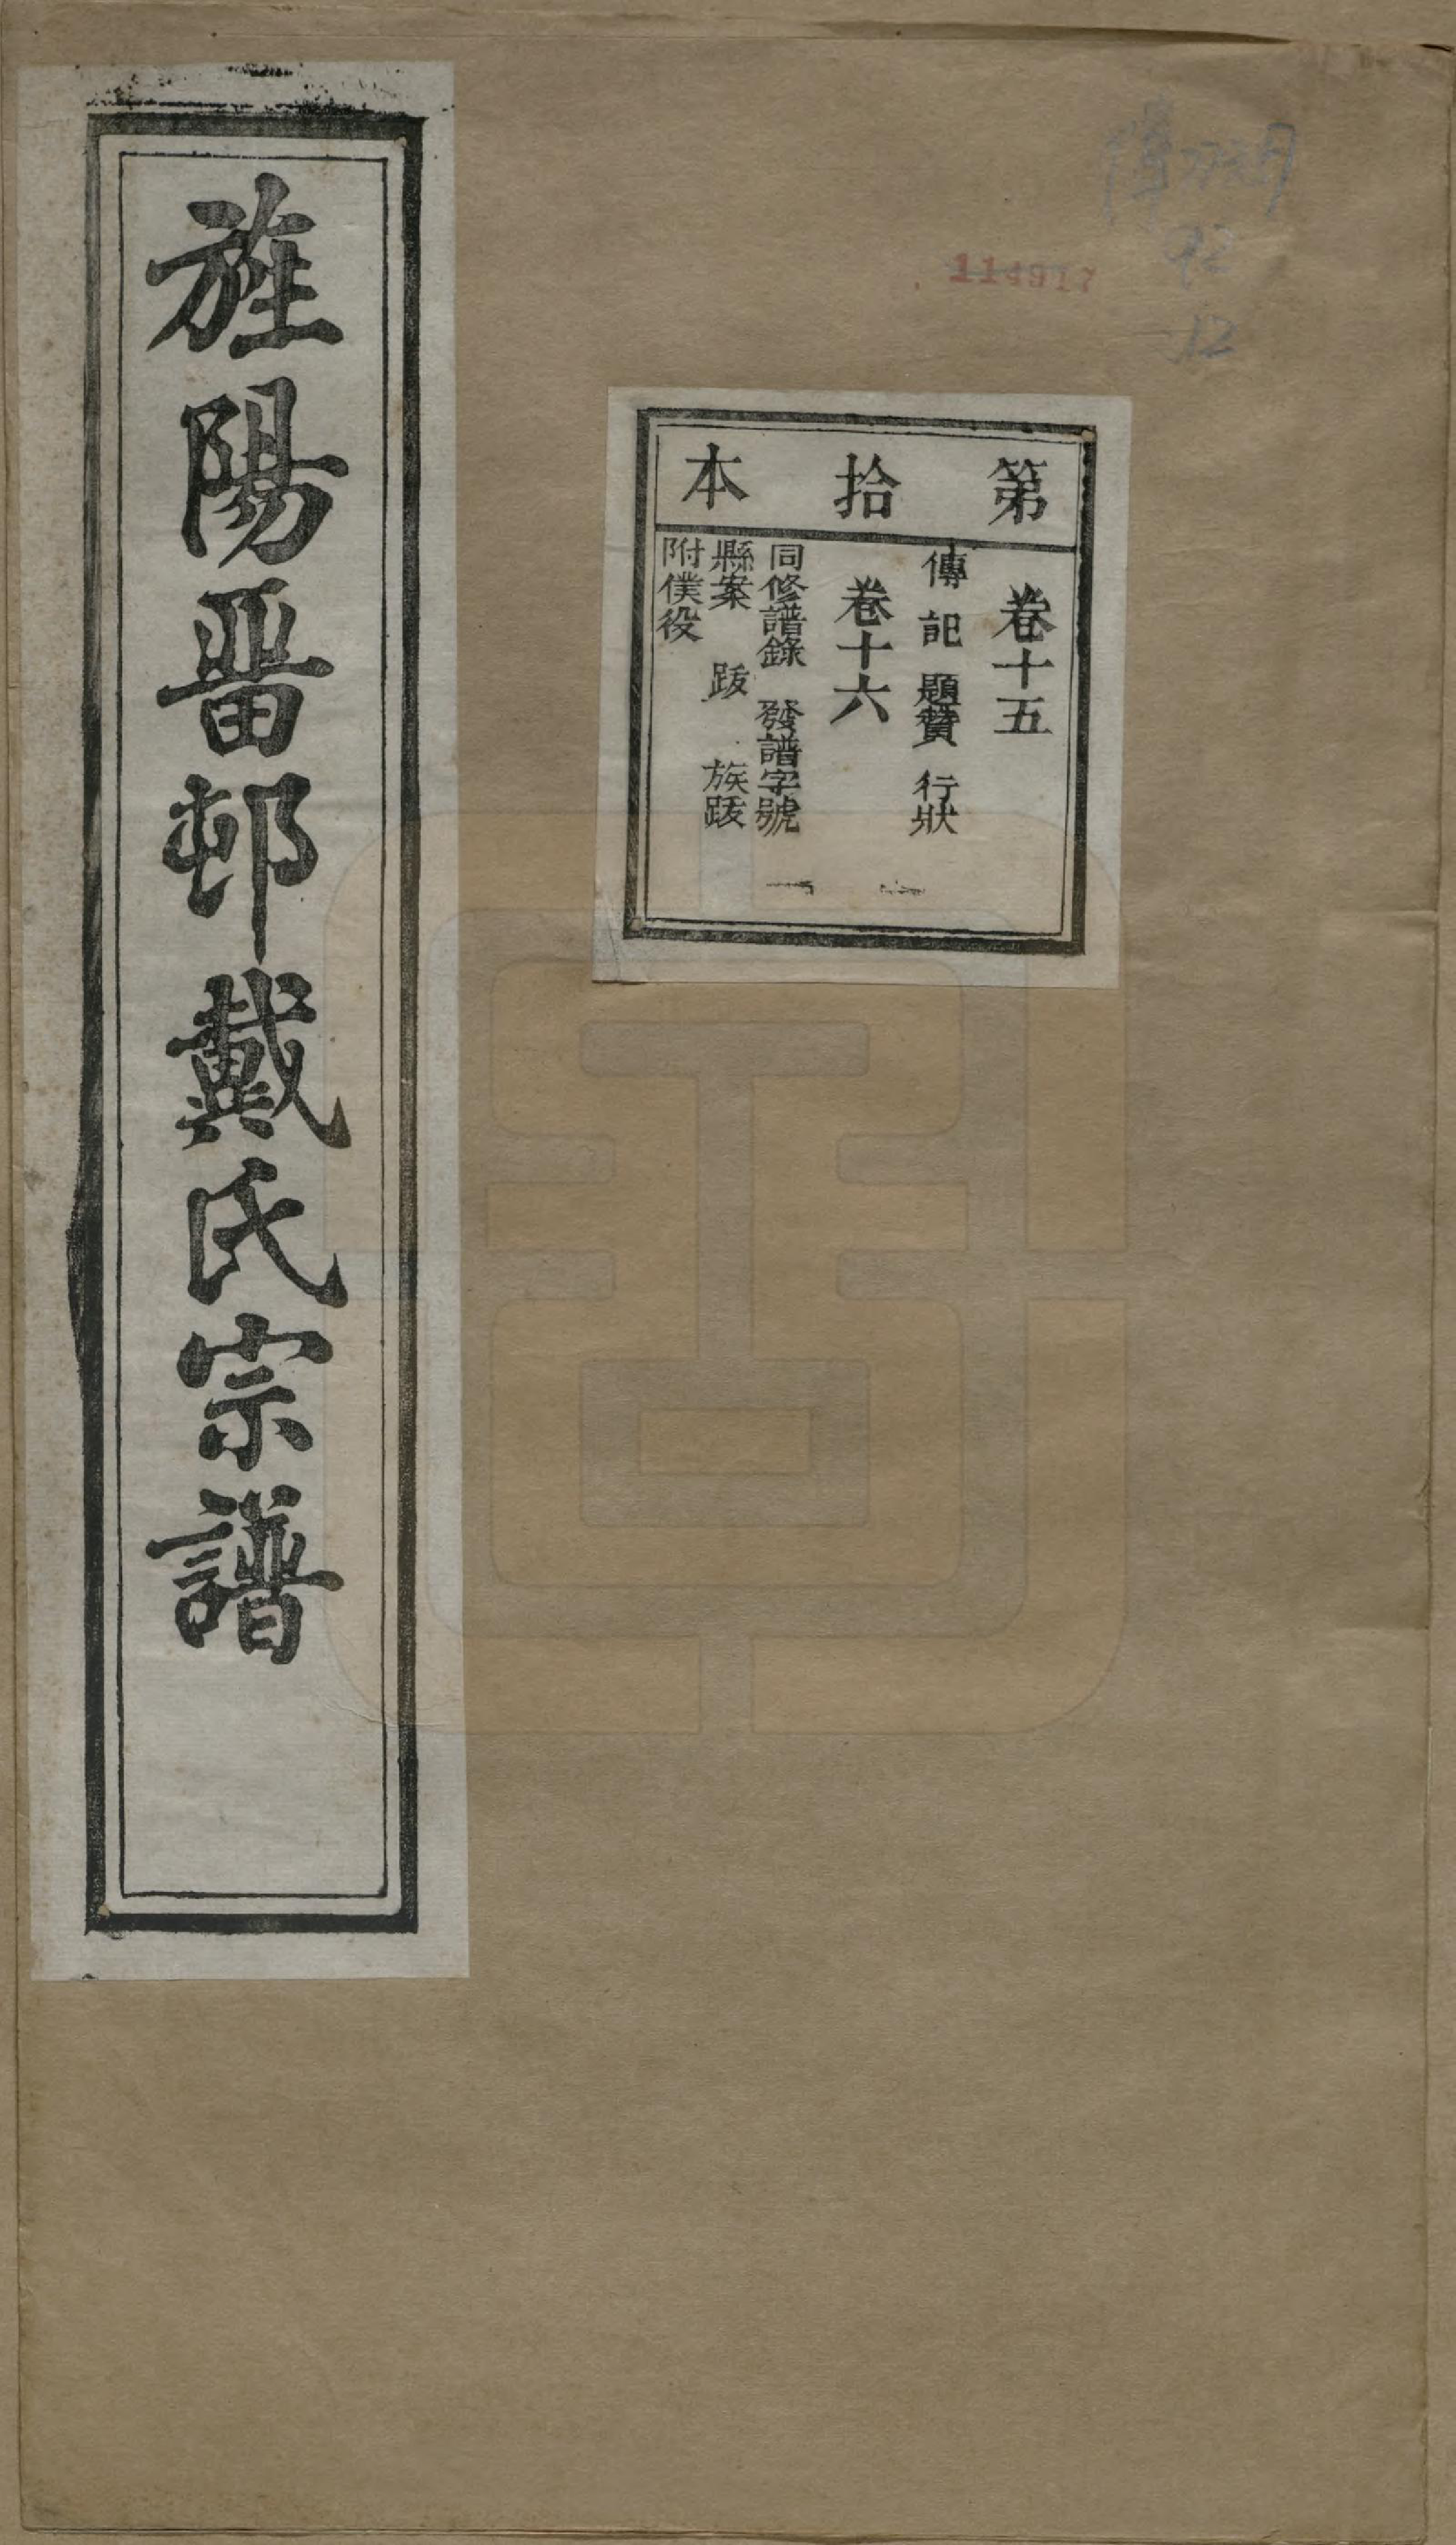 114917
92
12
第拾本
卷十五
傳記 題贊 行狀
卷十六
同修譜錄 發譜字號
縣案 跋 族跋
附僕役
旌陽畱邨戴氏宗譜